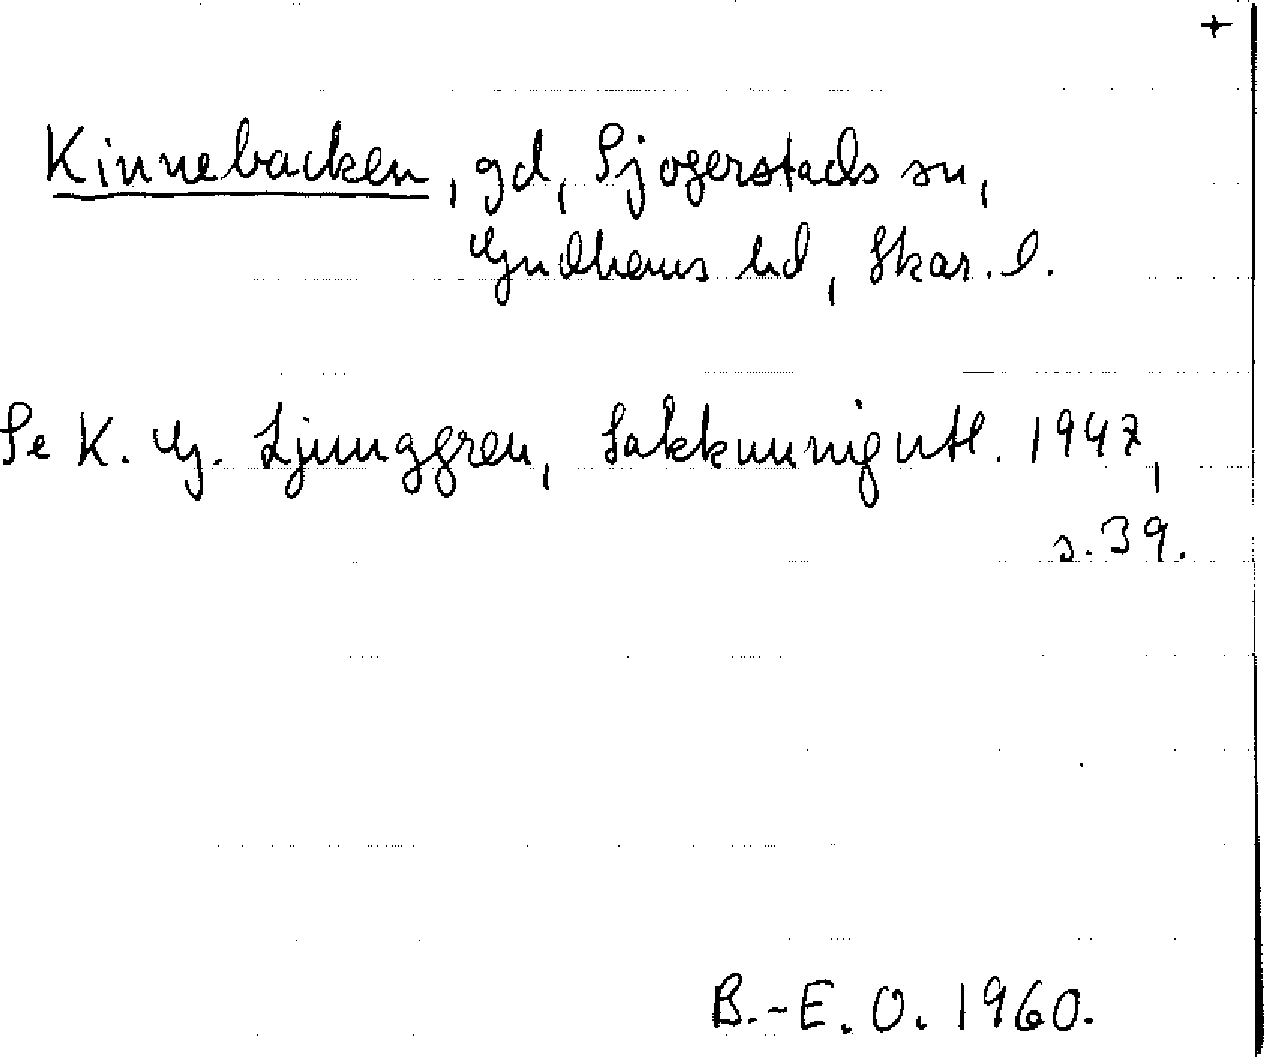 +
Kinnebacken, gd, Sjogerstads sn,
Gudhems hd, Skar. l.
Se K. G. Ljunggren, Sakkunnigutl. 1947,
s. 39.
B.-E. O. 1960.